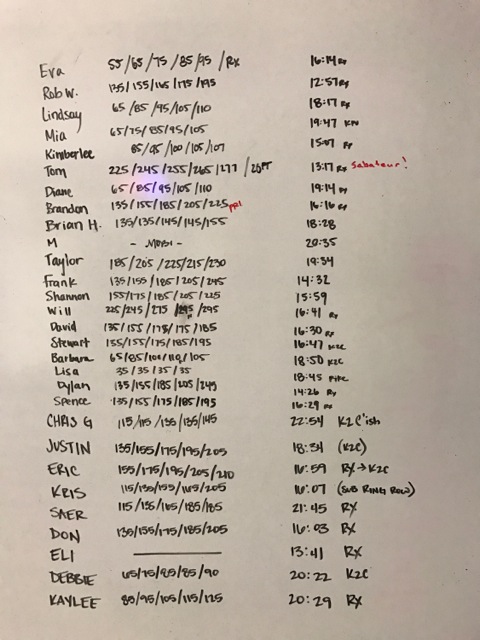 Eva 55/65/75/85/95/RX 16:14 Rx
Rob W. 135/155/165/175/195 12:57 Rx
Lindsay 65/85/95/105/110 18:17 Rx
Mia 65/75/85/95/105 19:47
Kimberlee 85/95/100/105/107 15:07
Tom 225/245/255/265/277 13:17 Rx Sabateur!
Diane 65/85/95/105/110 19:14 Rx
Brandon 135/155/185/205/225 PR! 16:16 Rx
Brian H. 135/135/145/145/155 18:28
M - MOBI - 20:35
Taylor 185/205/225/215/230 19:34
Frank 135/155/185/205/245 14:32
Shannon 155/175/185/205/225 15:59
Will 225/245/275/295/295 16:41 Rx
David 135/155/175/175/185 16:30 Rx
Stewart 135/155/175/185/195 16:47 K2C
Barbara 65/85/100/110/105 18:50 K2C
Lisa 35/35/35/35 18:45 PIPE
Dylan 135/155/185/205/245 14:26 Rx
Spence 135/155/175/185/195 16:29 Rx
CHRIS G 115/115/135/135/145 22:54 K2C'ish
JUSTIN 135/155/175/195/205 18:34 (K2C)
ERIC 155/175/195/205/210 16:59 RX→K2C
KRIS 115/135/155/165/205 16:07 (SUB RING ROW)
SAER 115/135/165/185/185 21:45 RX
DON 135/155/175/185/205 16:03 RX
ELI 13:41 RX
DEBBIE 65/75/85/85/90 20:22 K2C
KAYLEE 85/95/105/115/125 20:29 RX